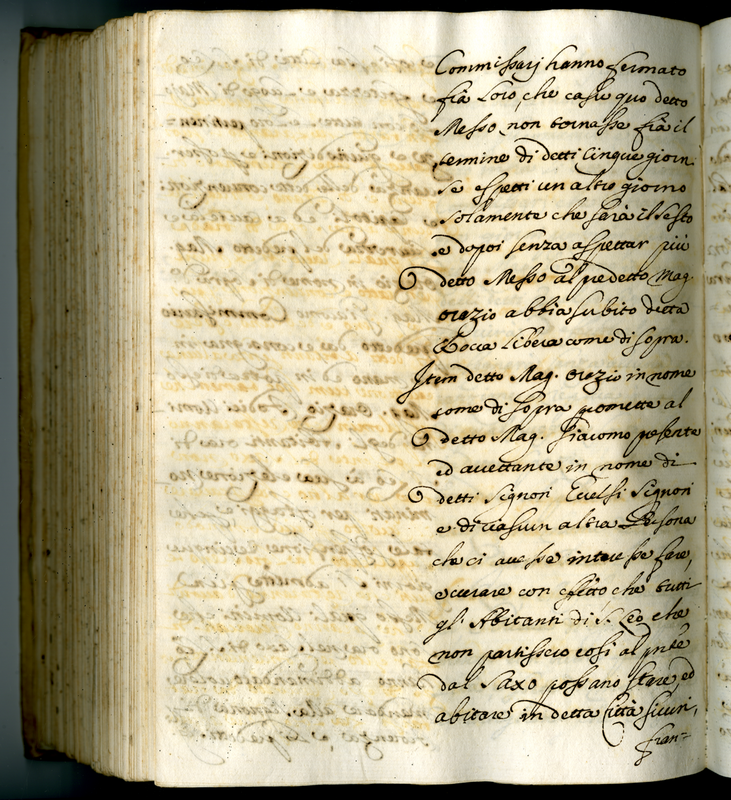 Commissarj hanno fermato
frà Loro, che casu quo detto
Messo non tornasse frà il
termine di detti Cinque giorni
se aspetti un altro giorno
solamente che sarà il sesto
e dopoi senza aspettar più
detto Messo al predetto Mag.
Orazio abbia subito detta
Rocca libera come di sopra.
Item detto Mag. Orazio in nome
come di sopra promette al
detto Mag. Giacomo presente
ed accettante in nome di
detti Signori Eccelsi Signori
e di ciascun altra Persona
che ci avesse interesse fare,
e curare con effetto che tutti
gl'Abitanti di S. Leo che
non partissero così al pnte
dal Saxo possano stare, ed
abitare in detta Città sicuri,
fran=